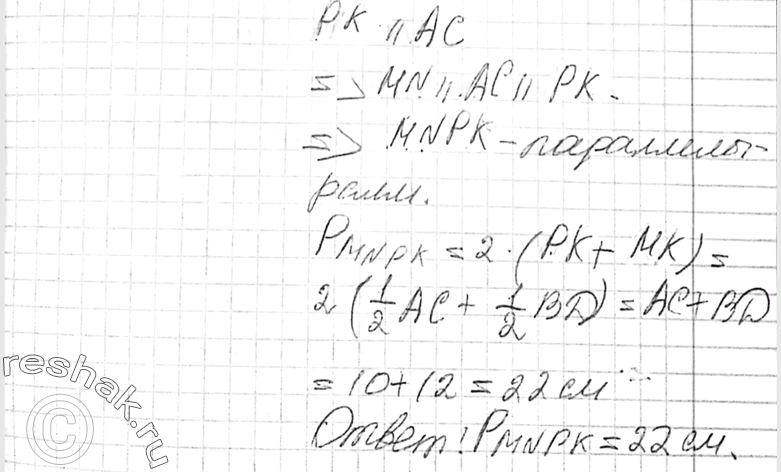 PK ∥ AC
=> MN ∥ AC ∥ PK.
=> MNPK - параллелог-
рамм.
P_MNPK = 2·(PK + MK) =
2(1/2 AC + 1/2 BD) = AC + BD
= 10 + 12 = 22 см
Ответ: P_MNPK = 22 см.
reshak.ru
©